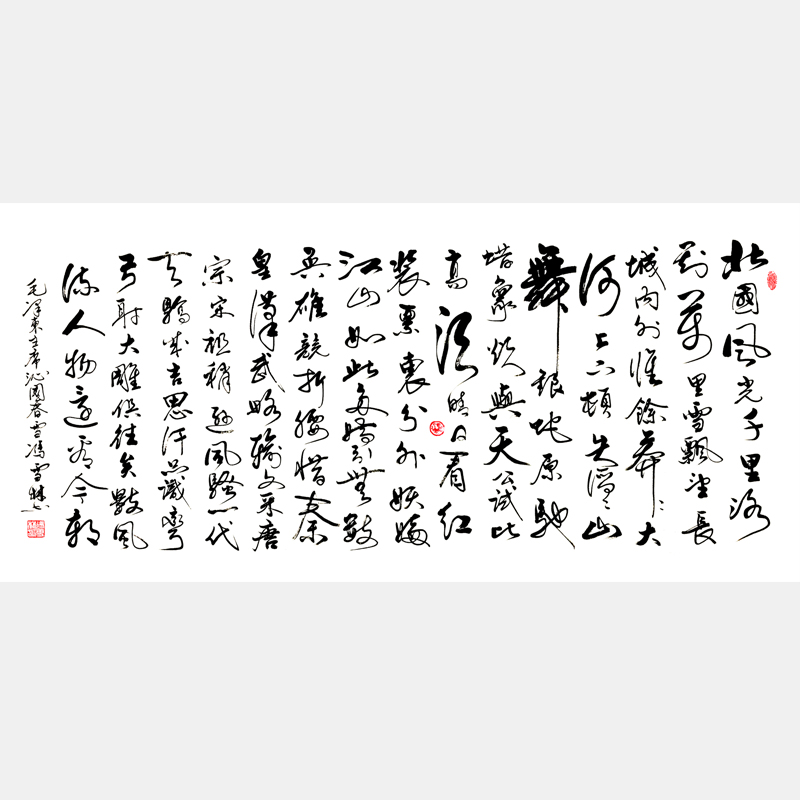 北國風光千里冰
封萬里雪飄望長
城内外惟餘莽〻大
河上下頓失滔〻山
舞銀蛇原馳
蜡象欲與天公試比
高須晴日看紅
裝素裹分外妖嬈
江山如此多嬌引無數
英雄競折腰惜秦
皇漢武略輸文采唐
宗宋祖稍遜風騷一代
天驕成吉思汗只識彎
弓射大雕俱往矣數風
流人物還看今朝
毛澤東主席沁園春雪馮雪林书